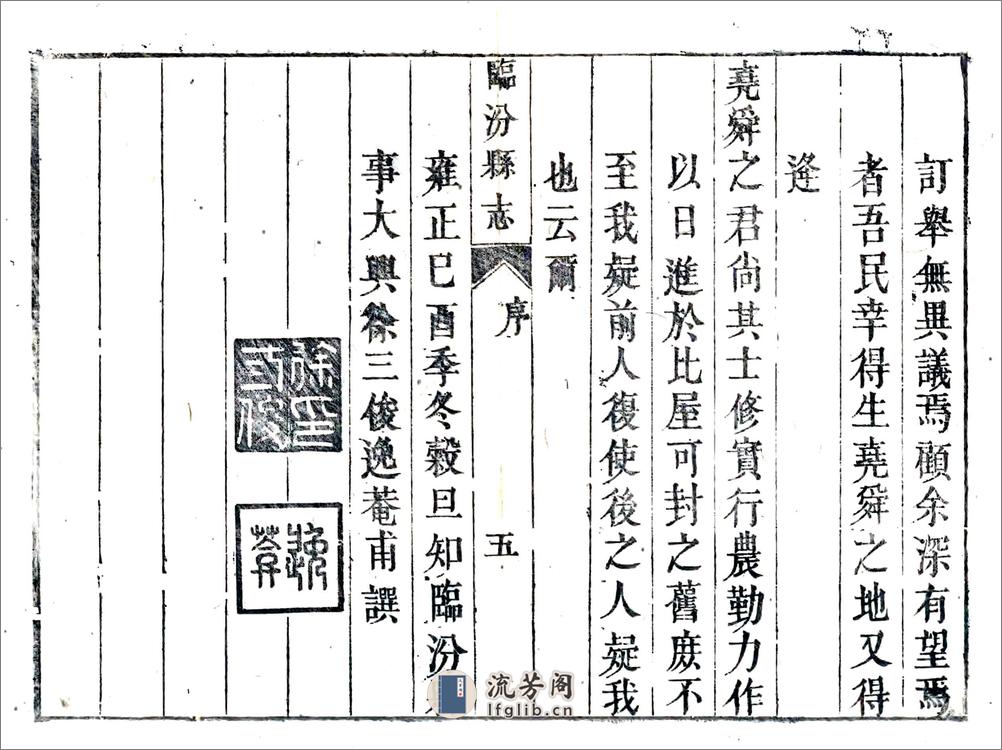 訂舉無異議焉顧余深有望焉
者吾民幸得生堯舜之地又得
逢
堯舜之君尙其士修實行農勤力作
以日進於比屋可封之舊庶不
至我疑前人復使後之人疑我
也云爾
臨汾縣志 序 五
雍正己酉季冬穀旦知臨汾
事大興徐三俊逸菴甫譔
徐三俊印
逸菴
流芳阁
lfglib.cn